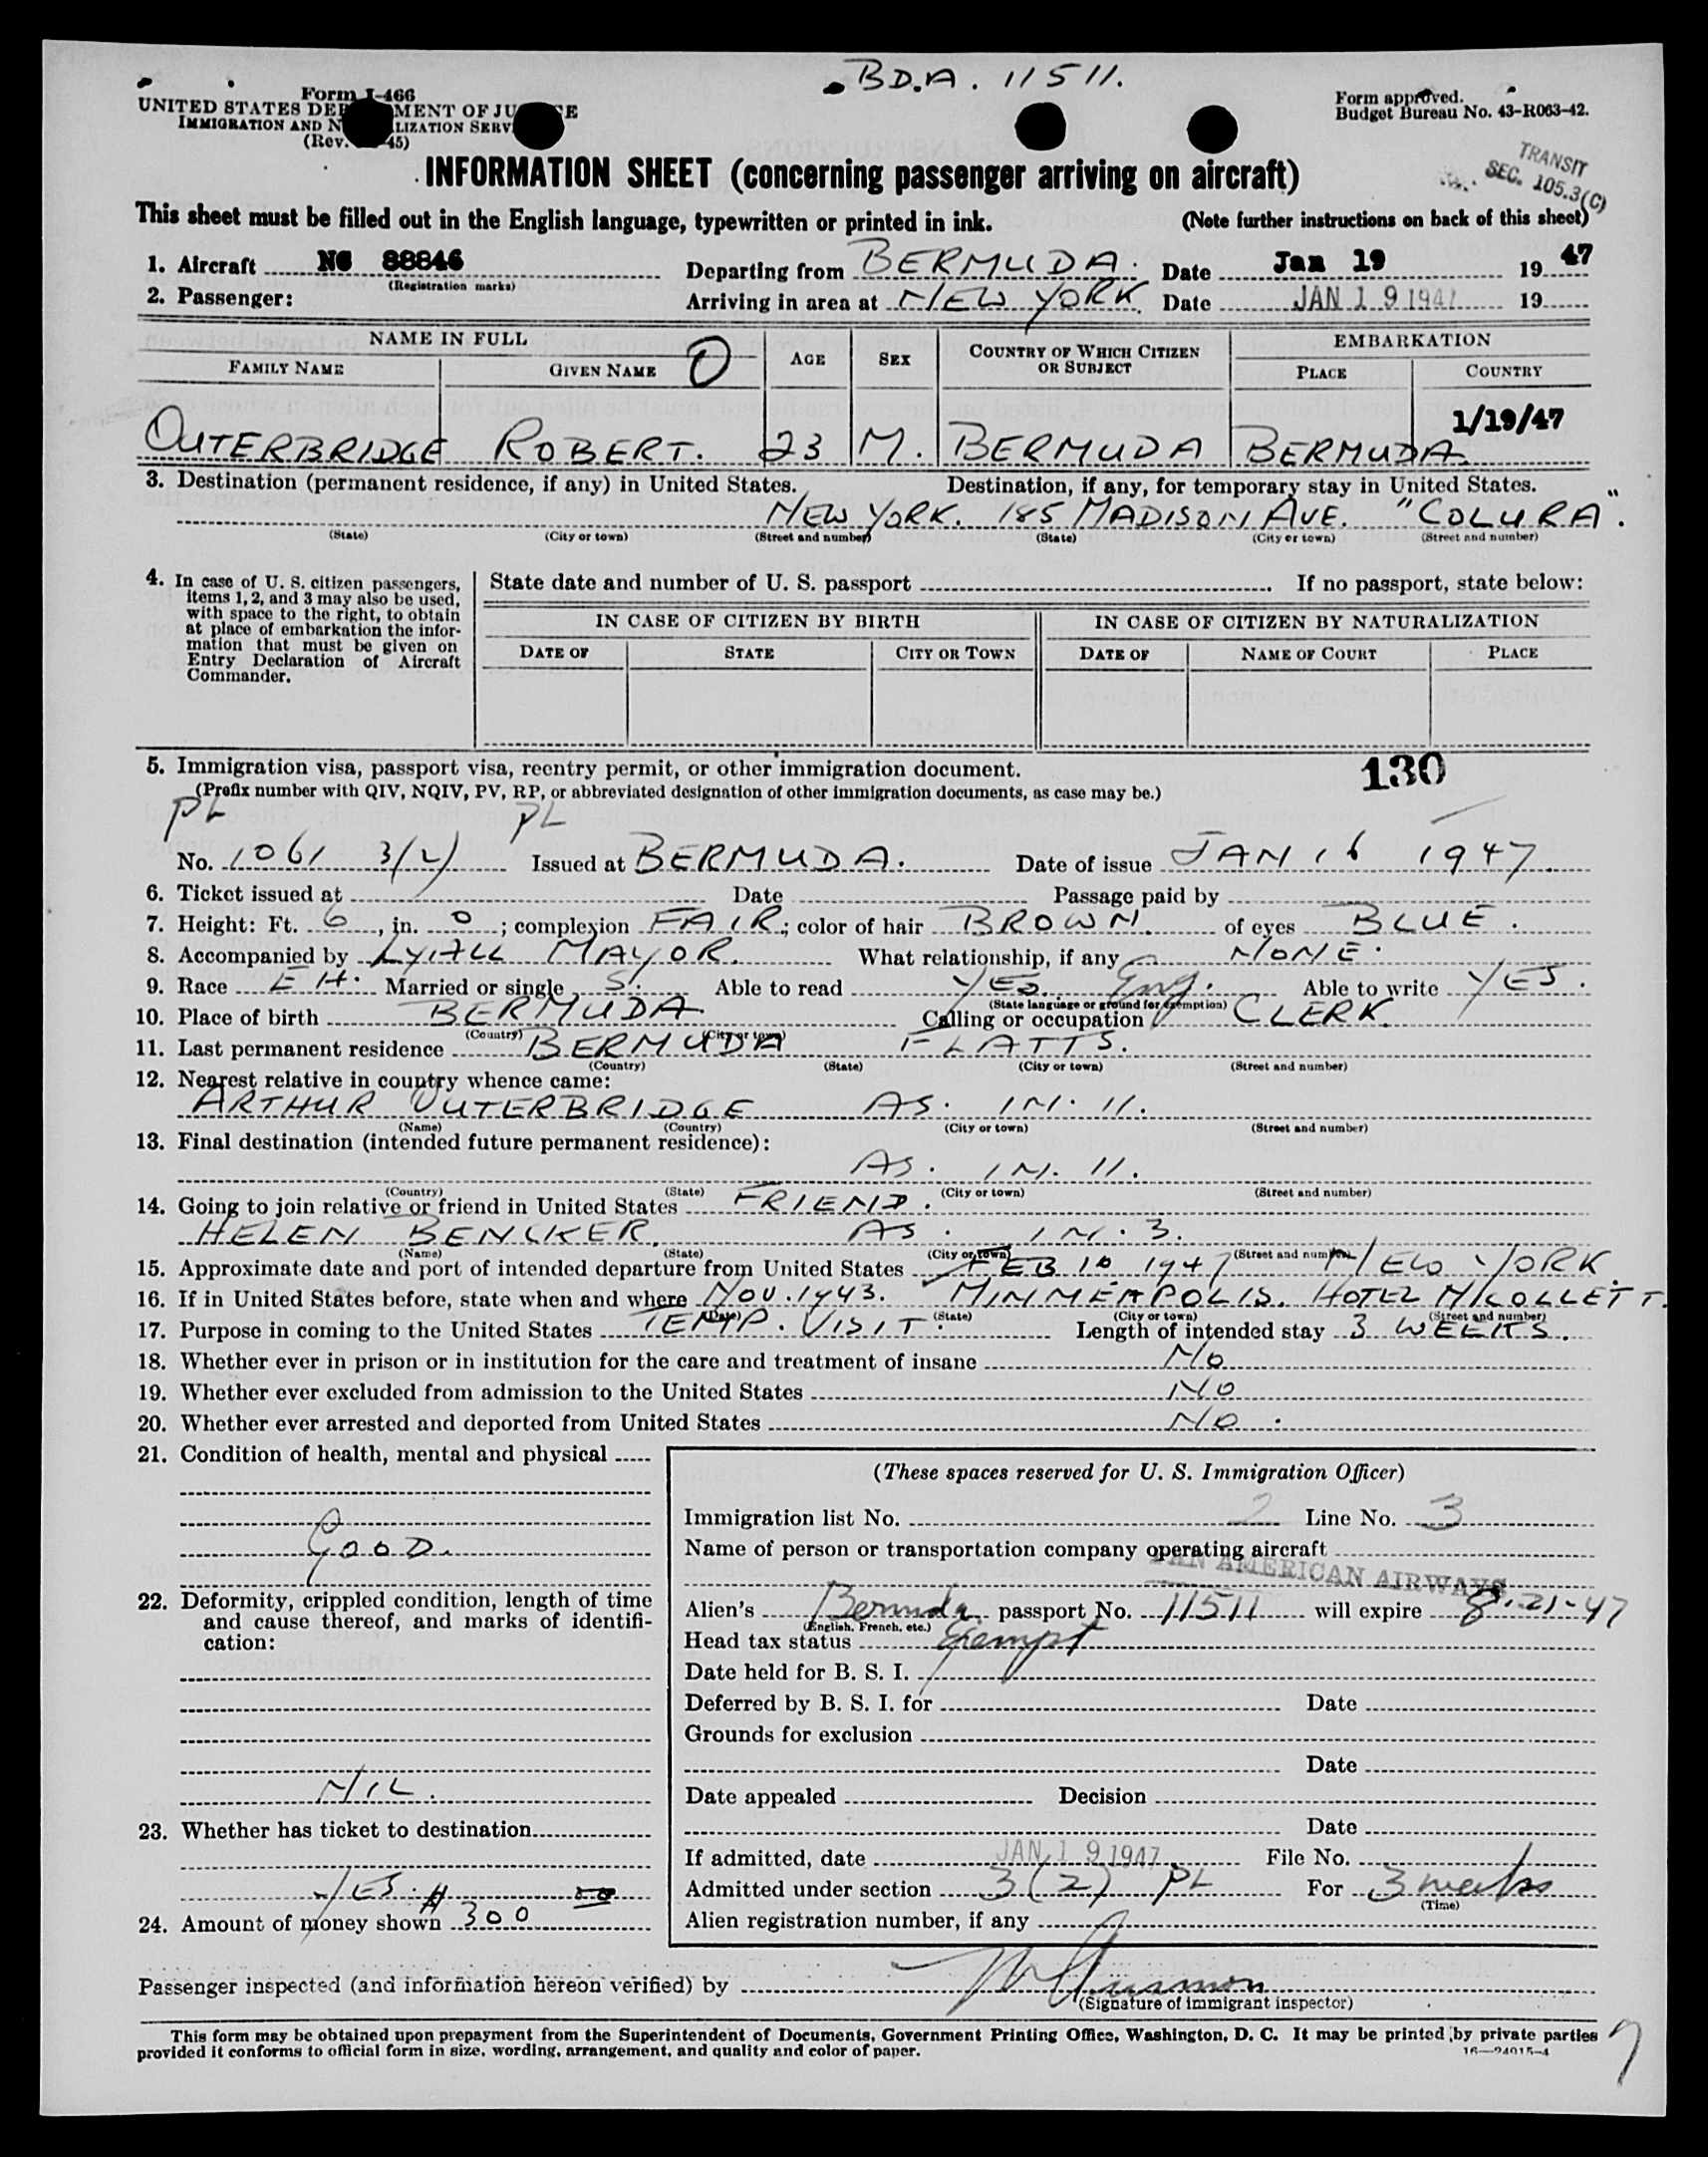 B.D.A. 11511.
Form I-466
UNITED STATES DEP MENT OF JU E
IMMIGRATION AND N LIZATION SERV
(Rev. 45)
Form approved.
Budget Bureau No. 43-R063-42.
TRANSIT
SEC. 105.3(C)
INFORMATION SHEET (concerning passenger arriving on aircraft)
This sheet must be filled out in the English language, typewritten or printed in ink. (Note further instructions on back of this sheet)
1. Aircraft NC 88846 Departing from BERMUDA. Date Jan 19 1947
(Registration marks)
2. Passenger: Arriving in area at NEW YORK. Date JAN 19 1947 19
NAME IN FULL
FAMILY NAME GIVEN NAME AGE SEX COUNTRY OF WHICH CITIZEN OR SUBJECT EMBARKATION PLACE COUNTRY
1/19/47
OUTERBRIDGE ROBERT. 23 M. BERMUDA BERMUDA.
3. Destination (permanent residence, if any) in United States. Destination, if any, for temporary stay in United States.
NEW YORK. 185 MADISON AVE. "COLURA".
(State) (City or town) (Street and number) (State) (City or town) (Street and number)
4. In case of U. S. citizen passengers, items 1, 2, and 3 may also be used, with space to the right, to obtain at place of embarkation the information that must be given on Entry Declaration of Aircraft Commander.
State date and number of U. S. passport If no passport, state below:
IN CASE OF CITIZEN BY BIRTH IN CASE OF CITIZEN BY NATURALIZATION
DATE OF STATE CITY OR TOWN DATE OF NAME OF COURT PLACE
5. Immigration visa, passport visa, reentry permit, or other immigration document. 130
(Prefix number with QIV, NQIV, PV, RP, or abbreviated designation of other immigration documents, as case may be.)
PL PL
No. 1061 3(2) Issued at BERMUDA. Date of issue JAN 16 1947.
6. Ticket issued at Date Passage paid by
7. Height: Ft. 6, in. 0; complexion FAIR; color of hair BROWN. of eyes BLUE.
8. Accompanied by LYALL MAYOR. What relationship, if any NONE.
9. Race EH. Married or single S. Able to read YES. Eng. Able to write YES.
(State language or ground for exemption)
10. Place of birth BERMUDA Calling or occupation CLERK.
(Country) (City or town)
11. Last permanent residence BERMUDA FLATTS.
(Country) (State) (City or town) (Street and number)
12. Nearest relative in country whence came:
ARTHUR OUTERBRIDGE AS. IN. 11.
(Name) (Country) (City or town) (Street and number)
13. Final destination (intended future permanent residence):
AS. IN. 11.
(Country) (State) (City or town) (Street and number)
14. Going to join relative or friend in United States FRIEND.
HELEN BENCKER. AS. IN. 3.
(Name) (State) (City or town) (Street and number)
15. Approximate date and port of intended departure from United States FEB 10 1947 NEW YORK.
16. If in United States before, state when and where NOV. 1943. MINNEAPOLIS. HOTEL NICOLLETT.
(Date) (State) (City or town) (Street and number)
17. Purpose in coming to the United States TEMP. VISIT. Length of intended stay 3 WEEKS.
18. Whether ever in prison or in institution for the care and treatment of insane NO
19. Whether ever excluded from admission to the United States NO
20. Whether ever arrested and deported from United States NO.
21. Condition of health, mental and physical
GOOD.
22. Deformity, crippled condition, length of time and cause thereof, and marks of identification:
NIL.
23. Whether has ticket to destination
YES.
24. Amount of money shown 300
(These spaces reserved for U. S. Immigration Officer)
Immigration list No. 2 Line No. 3
Name of person or transportation company operating aircraft
PAN AMERICAN AIRWAYS
Alien's Bermuda passport No. 11511 will expire 8-21-47
(English, French, etc.)
Head tax status Exempt
Date held for B. S. I.
Deferred by B. S. I. for Date
Grounds for exclusion
Date
Date appealed Decision
Date
If admitted, date JAN 19 1947 File No.
Admitted under section 3(2) PL For 3 weeks
(Time)
Alien registration number, if any
Passenger inspected (and information hereon verified) by
(Signature of immigrant inspector)
This form may be obtained upon prepayment from the Superintendent of Documents, Government Printing Office, Washington, D. C. It may be printed by private parties
provided it conforms to official form in size, wording, arrangement, and quality and color of paper. 16—24015-4